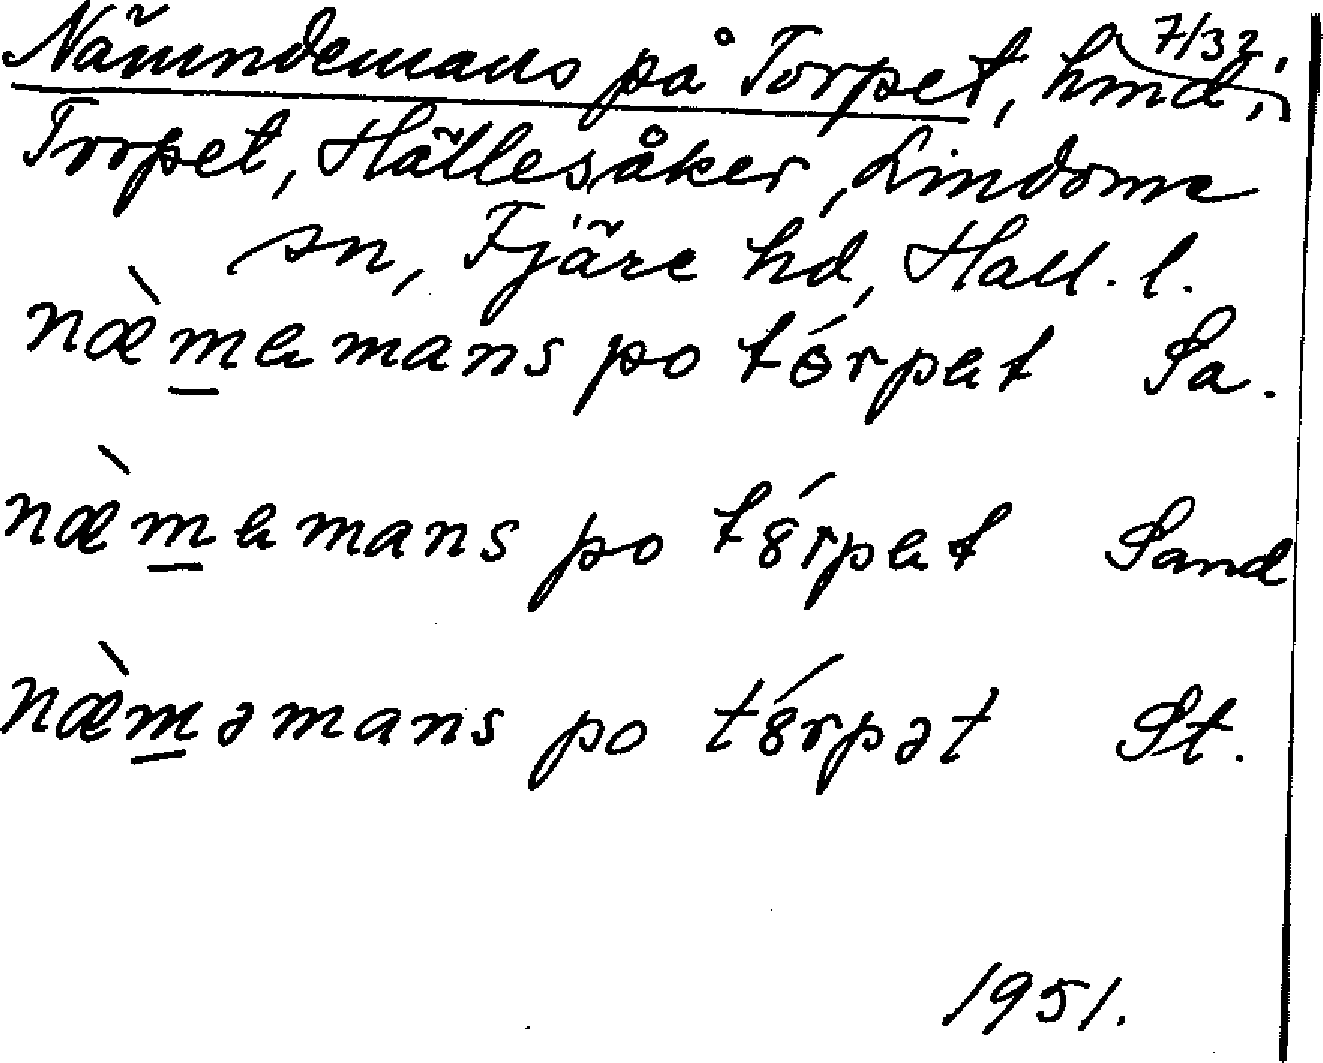 Nämndemans på Torpet, hmd, 7/32, i
Torpet, Hällesåker, Lindome
sn, Fjäre hd, Hall. l.
næ̀m̲ɛmans po tórpɛt Sa.
næ̀m̲ɛmans po tȣ́rpɛt Sand
næ̀m̲əmans po tȣ́rpət St.
1951.